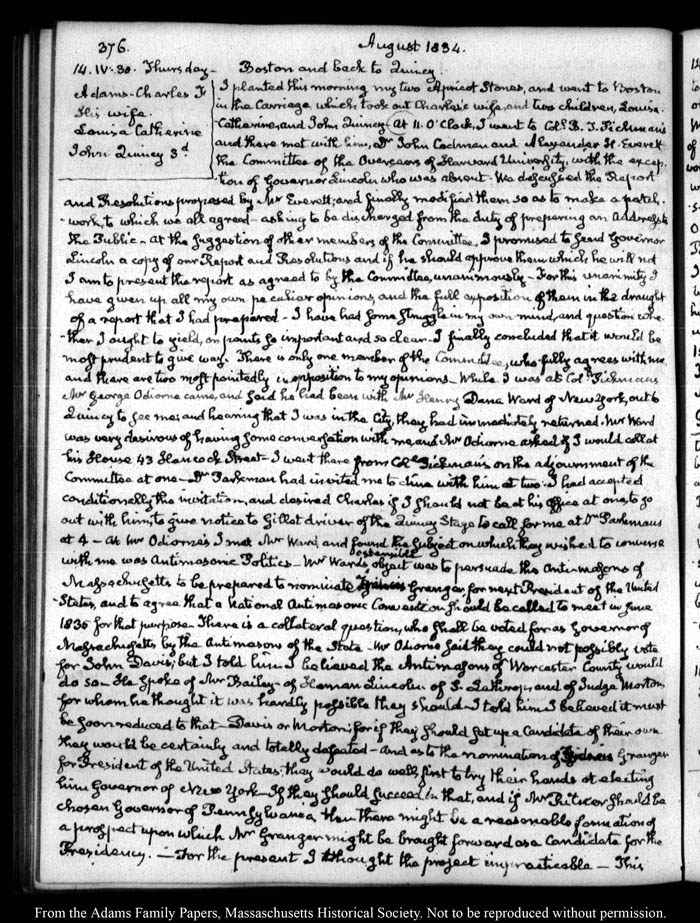 376.
August 1834.
14. IV:30. Thursday-
Adams-Charles F
His wife.
Louisa Catherine
John Quincy 3d
Boston and back to Quincy.
I planted this morning my two Apricot Stones, and went to Boston
in the Carriage, which took out Charles's wife, and two children, Louisa-
Catherine, and John Quincy. At 11. O'Clock, I went to Coll. B. T. Pickman's
and there met with him, Dr John Codman and Alexander H. Everett
the Committee of the Overseers of Harvard University, with the excep-
-tion of Governor Lincoln who was absent. We discussed the Report
and Resolutions proposed by Mr Everett, and finally modified them so as to make a patch-
-work, to which we all agreed- asking to be discharged from the duty of preparing an Address to
the Public- At the suggestion of other members of the Committee, I promised to send Governor
Lincoln a copy of our Report and Resolutions and if he should approve them which he will not
I am to present the report as agreed to by the Committee, unanimously- For this unanimity I
have given up all my own peculiar opinions, and the full exposition of them in the draught
of a report that I had prepared- I have had some struggle in my own mind, and question whe-
-ther I ought to yield, on points so important and so clear- I finally concluded that it would be
most prudent to give way. There is only one member of the Committee, who fully agrees with me,
and there are two most pointedly in opposition to my opinions- While I was at Coll Pickman's
Mr George Odiorne came, and said he had been with Mr Henry Dana Ward of New York, out to
Quincy to see me; and hearing that I was in the City, they had immediately returned. Mr Ward
was very desirous of having some conversation with me, and Mr Odiorne asked if I would call at
his House 43 Hancock Street- I went there from Coll Pickman's on the adjournment of the
Committee at one- Dr Parkman had invited me to dine with him at two. I had accepted
conditionally the invitation, and desired Charles if I should not be at his Office at one, to go
out with him, to give notice to Gillet driver of the Quincy Stage to call for me at Dr Parkman's
at 4- At Mr Odiorne's I met Mr Ward, and found the subject on which they wished to converse
with me was Antimasonic Politics- Mr Ward's ostensible object was to persuade the Antimasons of
Massachusetts to be prepared to nominate Francis Granger for next President of the United
States, and to agree that a National Antimasonic Convention should be called to meet in June
1835 for that purpose- There is a collateral question, who shall be voted for as Governor of
Massachusetts by the Antimasons of the State- Mr Odiorne said they could not possibly vote
for John Davis; but I told him I believed the Antimasons of Worcester County would
do so- He spoke of Mr Bailey- of Heman Lincoln of S. Lathrop, and of Judge Morton,
for whom he thought it was hardly possible they should- I told him I believed it must
be soon reduced to that- Davis or Morton; for if they should set up a Candidate of their own
they would be certainly and totally defeated- And as to the nomination of Francis Granger
for President of the United States, they would do well, first to try their hands at electing
him Governor of New York- If they should succeed in that, and if Mr Ritner should be
chosen Governor of Pennsylvania, then there might be a reasonable formation of
a prospect upon which Mr Granger might be brought forward as a Candidate for the
Presidency.- For the present I thought the project impracticable- This
From the Adams Family Papers, Massachusetts Historical Society. Not to be reproduced without permission.